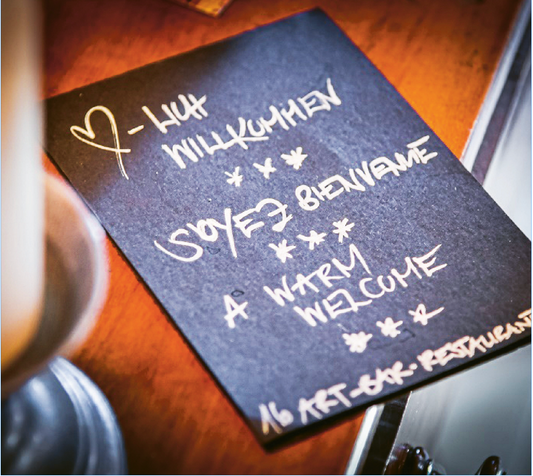 ♡-LICH
WILLKOMMEN
* * *
SOYEZ BIENVENUE
* * *
A WARM
WELCOME
* * *
16 ART-BAR-RESTAURANT